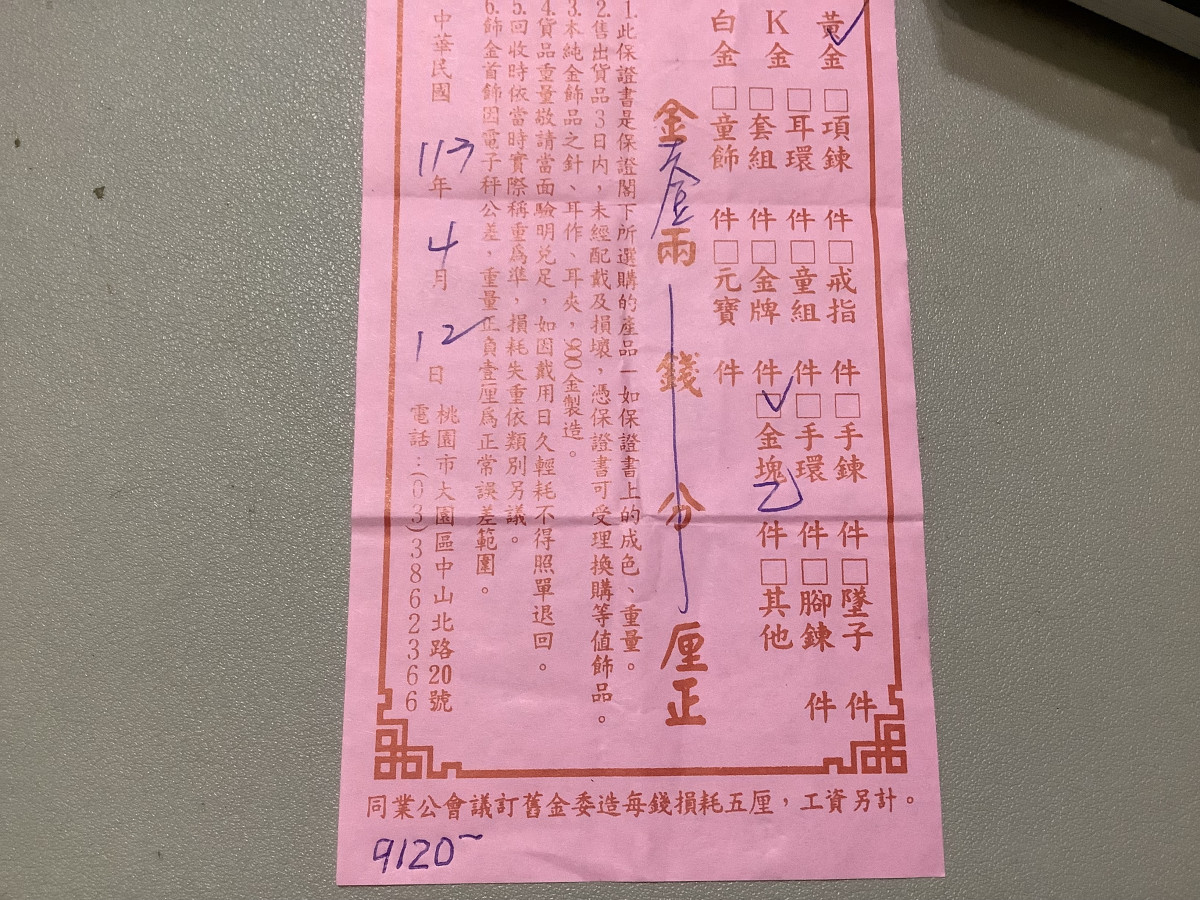 黃金 □項鍊 件□戒指 件□手鍊 件□墜子 件
K金 □耳環 件□童組 件□手環 件□腳鍊 件
□套組 件□金牌 件□金塊 乙件□其他
白金 □童飾 件□元寶 件
金 兩 錢 分 厘正
1.此保證書是保證閣下所選購的產品一如保證書上的成色、重量。
2.售出貨品3日內，未經配戴及損壞，憑保證書可受理換購等值飾品。
3.本純金飾品之針、耳作、耳夾，900金製造。
4.貨品重量敬請當面驗明兌足，如因戴用日久輕耗不得照單退回。
5.回收時依當時實際稱重為準，損耗失重依類別另議。
6.飾金首飾因電子秤公差，重量正負壹厘為正常誤差範圍。
中華民國 113年 4月 12日
桃園市大園區中山北路20號
電話：(03)3862366
同業公會議訂舊金委造每錢損耗五厘，工資另計。
9120~